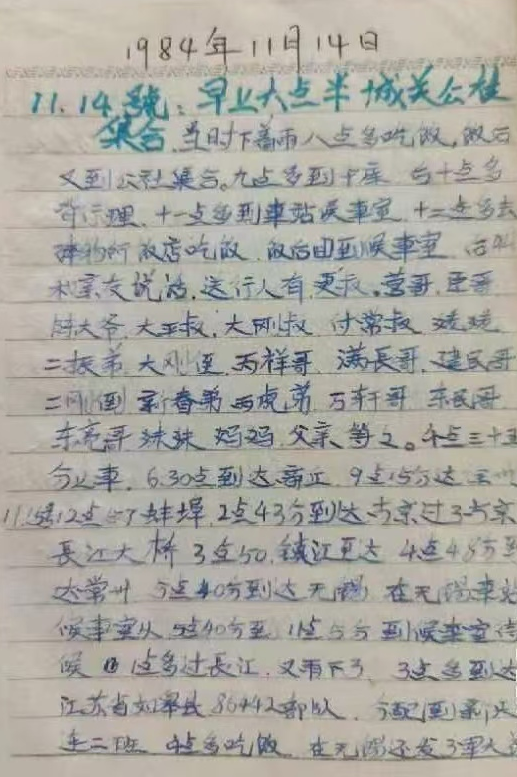 1984年11月14日
11.14號：早上六点半城关公社
集合.当时下着雨八点多吃饭,饭后
又到公社集合。九点多到 十点多
背行理.十一点多到車站候車室.十二点多去
饭店吃饭.饭后回到候車室
和亲友说话.送行人有 叔.营哥.
大爷.大 叔.大刚叔 付常叔
二振弟.大刚 祥哥 满長哥.建民哥
二刚 新春弟 虎弟 万轩哥 东民哥
东亮哥 妹妹 妈妈.父亲等人。4点三十五
分上車. 6.30点到达商丘. 9点15分达 州
11.15號12点 了蚌埠.2点43分到达南京过了南京
長江大桥 3点50.镇江 达 4点48分到
达常州 5点40分到达无锡 在无锡車站
候車室从5点40分至11点5分 到候車室等
候 1点多过長江.又雨下了 3点多到达
江苏省如皋县86442部队. 分配到新兵
连二班 4点多吃饭 在无锡还发了軍大